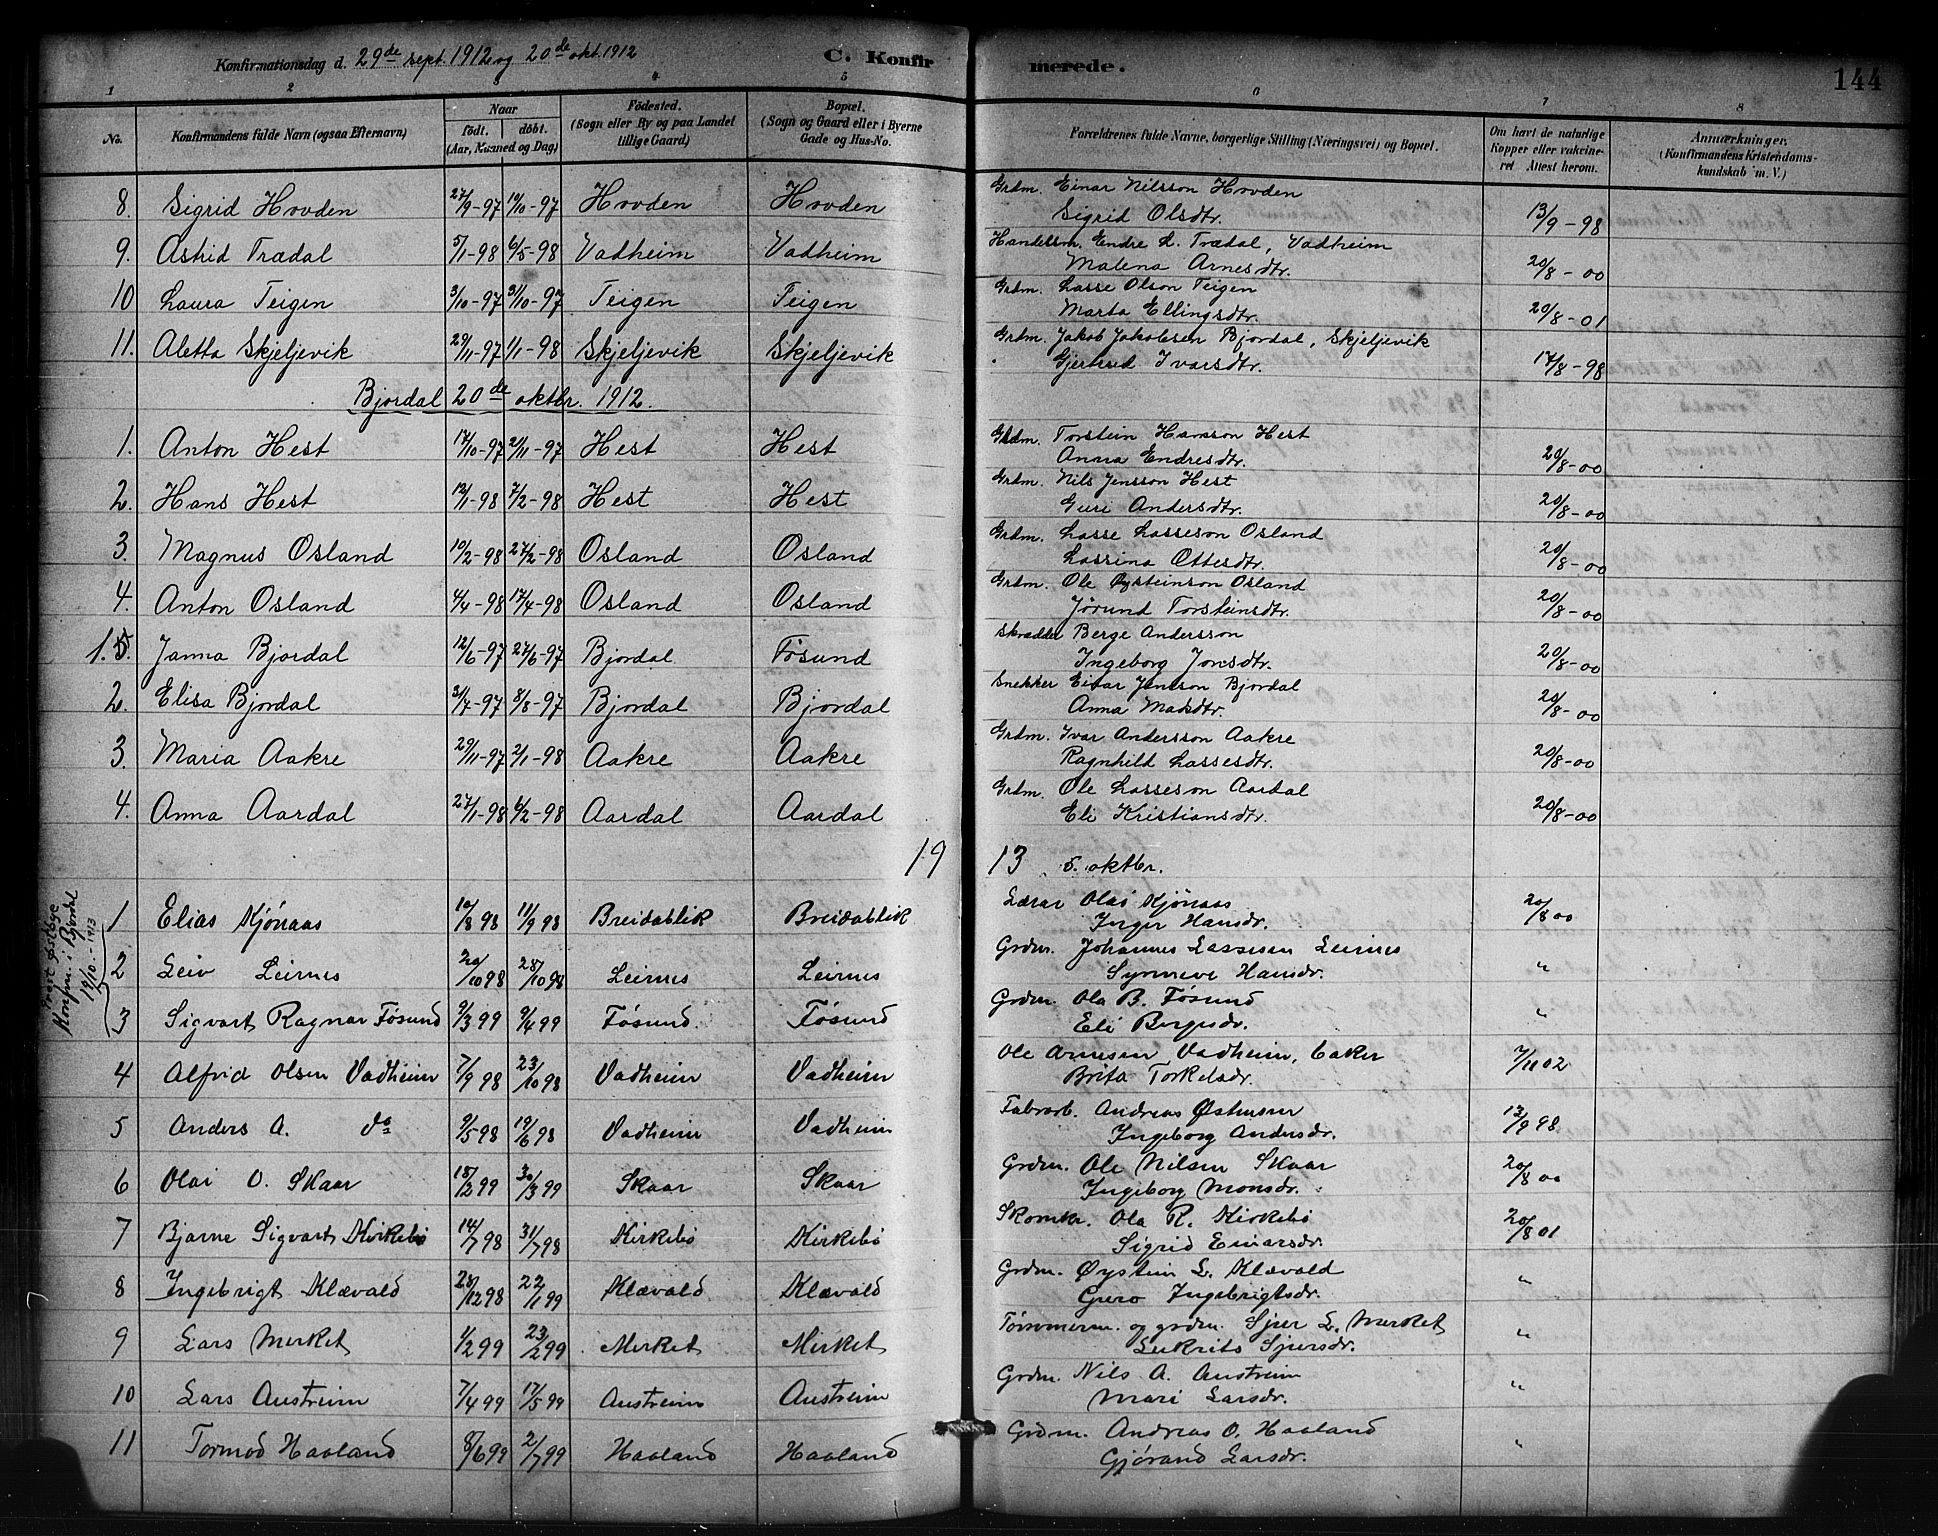 Konfirmationsdag d. 29de sept. 1912 og 20de okt. 1912 C. Konfirmerede. 144
1 2 3 4 5 6 7 8
No. Konfirmandens fulde Navn (ogsaa Efternavn) Naar født. døbt. (Aar, Maaned og Dag) Fødested. (Sogn eller By og paa Landet tillige Gaard) Bopæl. (Sogn og Gaard eller i Byerne Gade og Hus-No. Forældrenes fulde Navne, borgerlige Stilling (Næringsvei) og Bopæl. Om havt de naturlige Kopper eller vaksineret Attest herom. Anmærkninger. (Konfirmandens Kristendomskundskab m. V.)
8. Sigrid Hovden 27/9-97 10/10-97 Hovden Hovden Grdm. Einar Nilsson Hovden 13/9-98
Sigrid Olsdtr.
9. Astrid Trædal 5/1-98 6/5-98 Vadheim Vadheim Handelsm. Endre L. Trædal, Vadheim 20/8-00
Malena Arnesdtr.
10 Laura Teigen 3/10-97 31/10-97 Teigen Teigen Grdm. Lasse Olson Teigen 20/8-01
Marta Ellingsdtr.
11. Aletta Skjeljevik 29/11-97 1/1-98 Skjeljevik Skjeljevik Grdm. Jakob Jakobsen Bjordal, Skjeljevik 17/8-98
Gjertrud Ivarsdtr.
Bjordal 20de oktbr. 1912.
1. Anton Hest 17/10-97 2/11-97 Hest Hest Grdm. Torstein Hansson Hest 20/8-00
Anna Endresdtr.
2. Hans Hest 13/1-98 7/2-98 Hest Hest Grdm. Nils Jensson Hest 20/8-00
Guri Andersdtr.
3. Magnus Osland 10/2-98 27/2-98 Osland Osland Grdm. Lasse Lasseson Osland 20/8-00
Lassina Ottesdtr.
4. Anton Osland 4/4-98 17/4-98 Osland Osland Grdm. Ole Øysteinson Osland 20/8-00
Jørund Torsteinsdtr.
1. 5. Janna Bjordal 12/6-97 27/6-97 Bjordal Føsund Skrædder Berge Andersson 20/8-00
Ingeborg Jonsdtr.
2. Elisa Bjordal 3/7-97 8/8-97 Bjordal Bjordal Snekker Eivar Jensson Bjordal 20/8-00
Anna Madsdtr.
3. Maria Aakre 29/11-97 2/1-98 Aakre Aakre Grdm. Ivar Andersson Aakre 20/8-00
Ragnhild Lassesdtr.
4. Anna Aardal 27/1-98 6/2-98 Aardal Aardal Grdm. Ole Lasseson Aardal 20/8-00
Eli Kristiansdtr.
19 13 5. oktbr.
Konfm. i Bjordal 19/10-1913
1 Elias Kjönaas 10/8 98 11/9 98 Breidablik Breidablik Lærar Olai Kjönaas 20/8 00
Inger Hansdr.
2 Leiv Leirnes 20/10 98 28/10 98 Leirnes Leirnes Grdm. Johannes Lassesen Leirnes "
Synneve Hansdr.
3 Sigvart Ragnar Føsund 9/3 99 9/4 99 Føsund. Føsund Grdm. Ola B. Føsund "
Eli Bergesdr.
4 Alfrid Olsen Vadheim 7/9 98 23/10 98 Vadheim Vadheim Ole Arnesen Vadheim, baker 7/11 02
Brita Torkelsdr.
5 Anders A. do 9/5 98 19/6 98 Vadheim Vadheim Fabrarb. Andreas Østensen 13/9 98
Ingeborg Andersdr.
6 Olai O. Skaar 18/2 99 30/3 99 Skaar Skaar Grdm. Ole Nilsen Skaar 20/8 00
Ingeborg Monsdr.
7 Bjarne Sigvart Kirkebø 14/7 98 31/7 98 Kirkebø Kirkebø Skomkr. Ola R. Kirkebø 20/8 01
Sigrid Einarsdr.
8 Ingebrigt Klævold 28/12 98 22/1 99 Klævold Klævold Grdm. Øystein L. Klævold "
Guro Ingebrigtsdr.
9 Lars Merket 1/2 99 23/2 99 Merket Merket Tømmerm. og grdm. Sjur L. Merket "
Sjursdr.
10 Lars Austreim 7/4 99 17/5 99 Austreim Austreim Grdm. Nils A. Austreim "
Mari Larsdr.
11 Tormod Haaland 8/6 99 2/7 99 Haaland Haaland Grdm. Andreas O. Haaland "
Gjørand Larsdr.